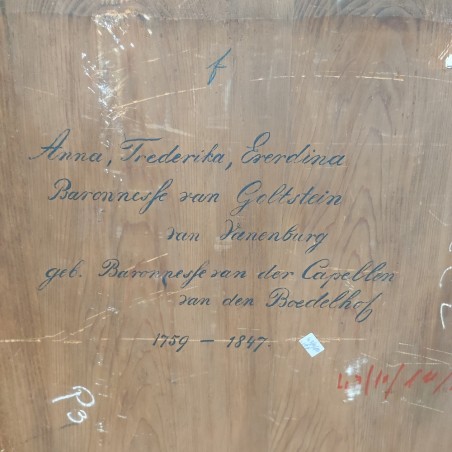 f
Anna, Frederika, Everdina
Baronnesse van Goltstein
van Vanenburg
geb. Baronnesse van der Capellen
van den Boedelhof
1759 – 1847.
P3